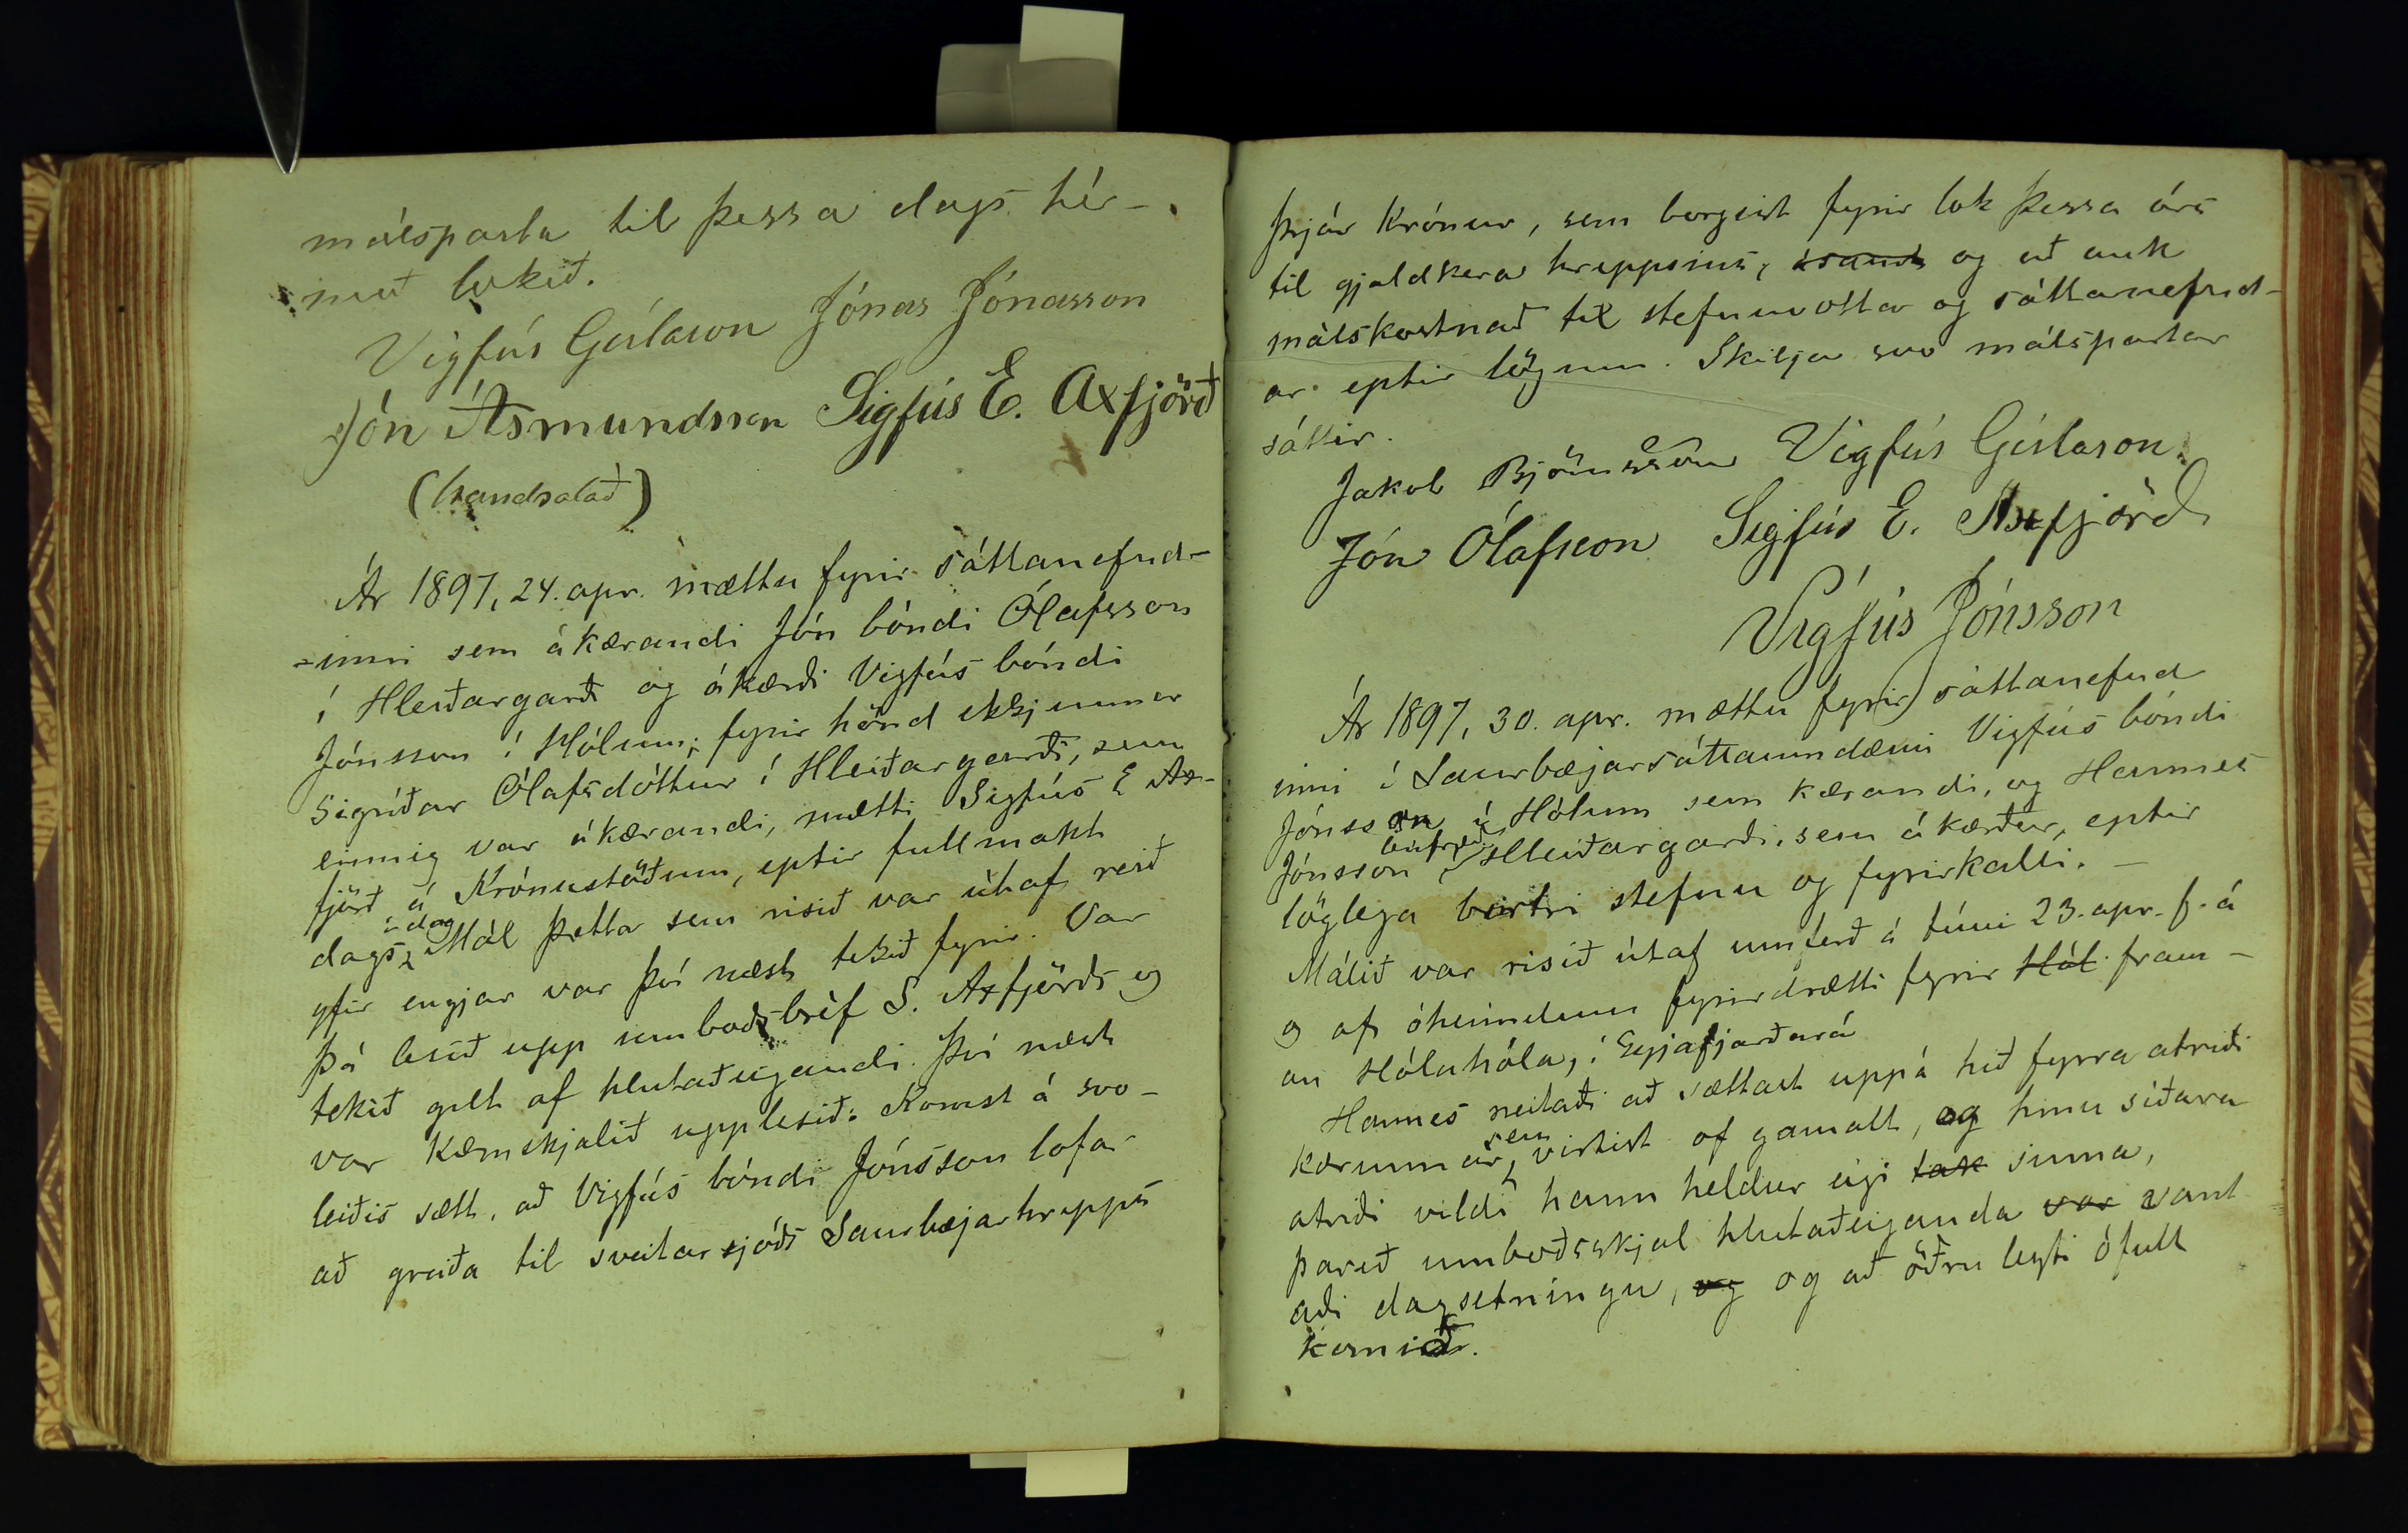 málsparta til þessa dags hér-
með lokið.
Vigfús Gíslason Jónas Jónasson
Jón Ásmundsson Sigfús E. Axfjörð
(handsalað)
Ár 1897, 24. apr. mættu fyrir sáttanefnd-
-inni sem ákærandi Jón bóndi Ólafsson
í Hleiðargarði og ákærði Vigfús bóndi
Jónsson í Hólum; fyrir hönd ekkjunnar
Sigríðar Ólafsdóttur í Hleiðargarði, sem
einnig var ákærandi, mætti Sigfús E Ax-
fjörð á Krónustöðum, eptir fullmakt
dags. í dag Mál þetta sem risið var útaf reið
yfir engjar var því næst tekið fyrir. Var
þá lesið upp umboðsbréf S. Axfjörðs og
tekið gilt af hlutaðeigandi. Því næst
var kæruskjalið upplesið: Komst á svo-
leiðis sætt, að Vigfús bóndi Jónsson lofar
að greiða til sveitarsjóðs Saurbæjarhrepps
Þrjár Krónur, sem borgist fyrir lok þessa árs
til gjaldkera hreppsins, og að auk
málskostnað til stefnuvotta og sáttanefnd-
ar eptir lögum. Skilja svo málspartar
sáttir.
Jakob Björnsson Vigfús Gíslason
Jón Ólafsson Sigfús E. Axfjörð
Vigfús Jónsson
Ár 1897, 30. apr. mættu fyrir sáttanefnd
inni í Saurbæjarsáttaumdæmi Vigfús bóndi
Jónsson á Hólum sem kærandi, og Hannes
Jónsson búfræð. Hleiðargarði, sem ákærður, eptir
löglega birtri stefnu og fyrirkalli. -
Málið var risið útaf umferð á túni 23. apr. f. á
og af óheimilum fyrirdrætti fyrir Hól fram-
an Hólahóla, í Eyjafjarðará
Hannes neitaði að sættast uppá hið fyrra atriði
kærunnar, sem virtist of gamalt, og hinu síðara
atriði vildi hann heldur eigi tak sinna,
þareð umboðsskjal hlutaðeiganda var vant
aði dagsetningu, og og að öðru leyti ófull
komið.